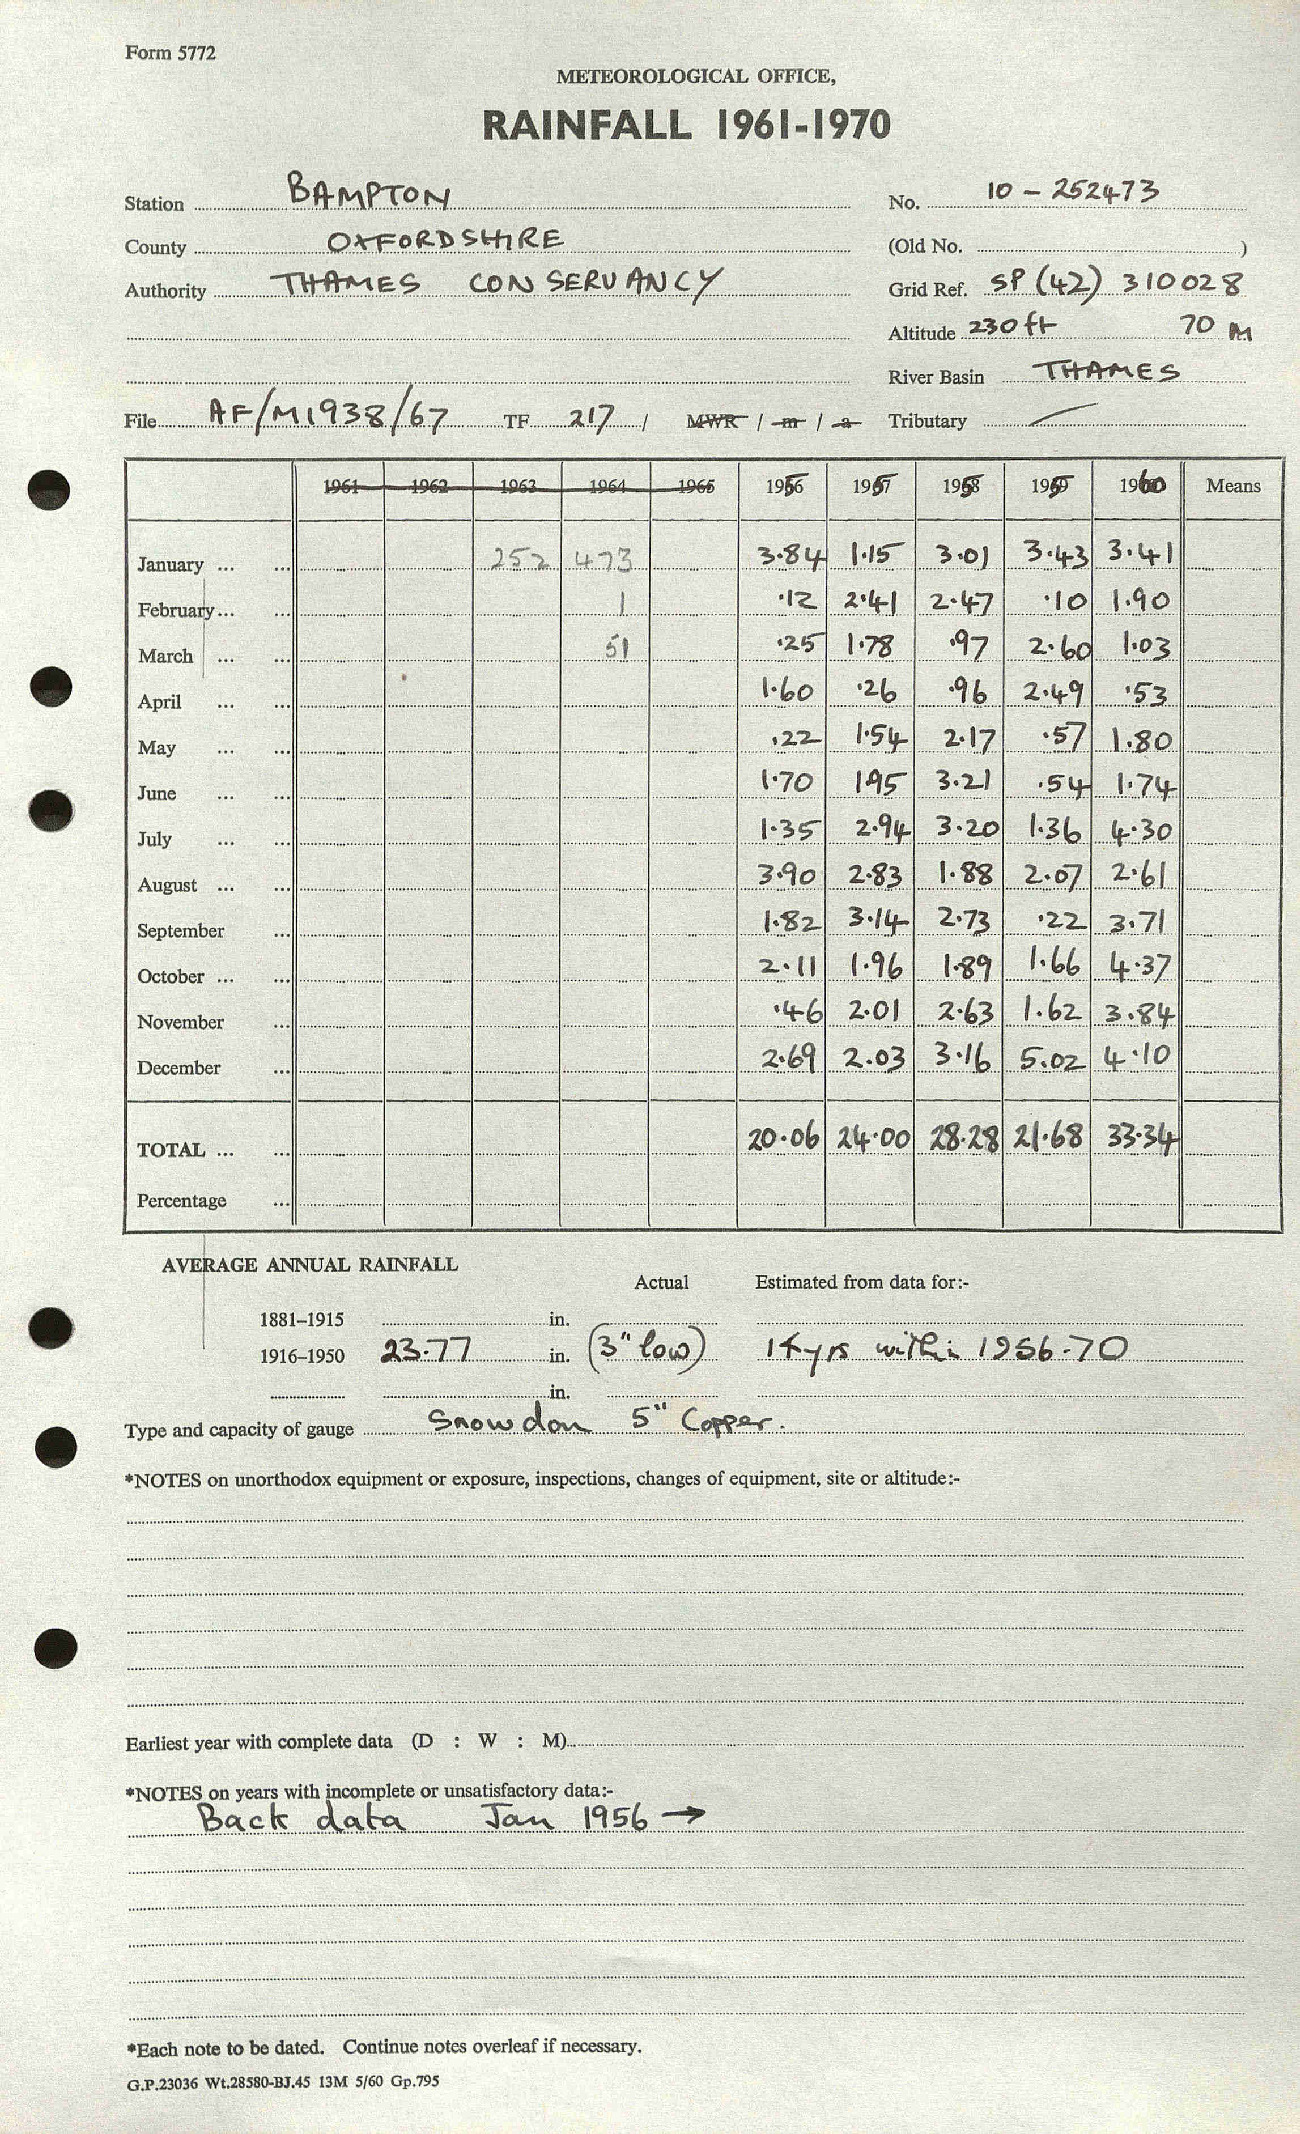 Form 5772
METEOROLOGICAL OFFICE,
RAINFALL 1961-1970
Station BAMPTON No. 10 - 252473
County OXFORDSHIRE (Old No. )
Authority THAMES CONSERVANCY Grid Ref. SP (42) 310028
Altitude 230 ft 70 M
River Basin THAMES
File AF/M1938/67 TF 217 / MWR / m / a Tributary
1961 1962 1963 1964 1965 1956 1957 1958 1959 1960 Means
January ... ... 252 473 3.84 1.15 3.01 3.43 3.41
February ... ... 1 .12 2.41 2.47 .10 1.90
March ... ... 51 .25 1.78 .97 2.60 1.03
April ... ... 1.60 .26 .96 2.49 .53
May ... ... .22 1.54 2.17 .57 1.80
June ... ... 1.70 1.95 3.21 .54 1.74
July ... ... 1.35 2.94 3.20 1.36 4.30
August ... ... 3.90 2.83 1.88 2.07 2.61
September ... 1.82 3.14 2.73 .22 3.71
October ... ... 2.11 1.96 1.89 1.66 4.37
November ... .46 2.01 2.63 1.62 3.84
December ... 2.69 2.03 3.16 5.02 4.10
TOTAL ... ... 20.06 24.00 28.28 21.68 33.34
Percentage ...
AVERAGE ANNUAL RAINFALL
Actual Estimated from data for:-
1881-1915 in.
1916-1950 23.77 in. (3" low) 14 yrs within 1956-70
in.
Type and capacity of gauge Snowdon 5" Copper.
*NOTES on unorthodox equipment or exposure, inspections, changes of equipment, site or altitude:-
Earliest year with complete data (D : W : M)
*NOTES on years with incomplete or unsatisfactory data:-
Back data Jan 1956 →
*Each note to be dated. Continue notes overleaf if necessary.
G.P.23036 Wt.28580-BJ.45 13M 5/60 Gp.795